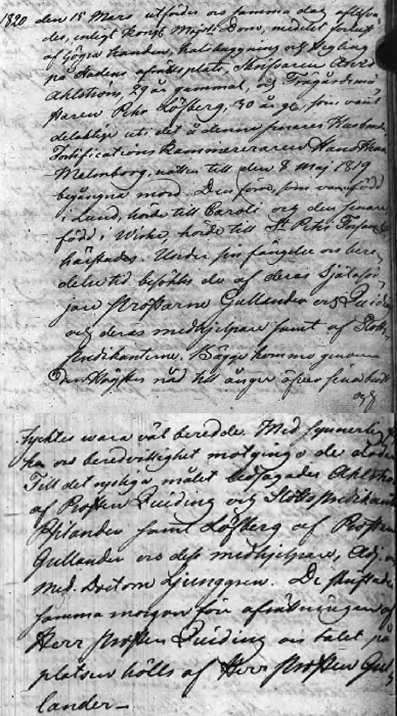 1820 den 15 Mars utfördes och samma dag aflifva-
des, enligt Kongl. Majsts Dom, medelst förlust
af högra handen, halshuggning och stegling
på Stadens afrättsplats, Skrifvaren Arvid
Ahlström, 29 år gammal, och Trägårdsmä-
staren Pehr Löfberg, 30 år gl, som varit
delaktige uti det å denne senares Husbonde
Fortifications Kammereraren Hans
Malmborg, natten till den 8 Maj 1819
begångna mord. Den förre, som var född
i Lund, hörde till Caroli och den senare
född i Wirke, hörde till St Petri Församl
härstädes. Under sin fängelse och bere-
delse tid besöktes de af deras Själasör-
jare Prostarne Gullander och Quiding
och deras medhjelpare samt af Slotts-
Predikanterne. Bägge kommo genom
den Högstes nåd till ånger öfver sina brott
och
tycktes wara väl beredde. Med synnerlig
och beredvillighet motgingo de döden
Till det rysliga målet beledsagades Ahlström
af Prosten Quiding och Slottspredikant
Philander samt Löfberg af Prosten
Gullander och dess medhjelpare, Adj.
Med. Doctorn Ljunggren. De skriftades
samma morgon före afrättningen af
Herr Prosten Quiding och talet på
platsen hölls af Herr Prosten Gul-
lander –